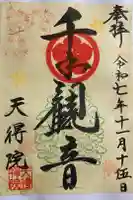 奉拝
令和七年十一月十五日
千手觀音
天得院